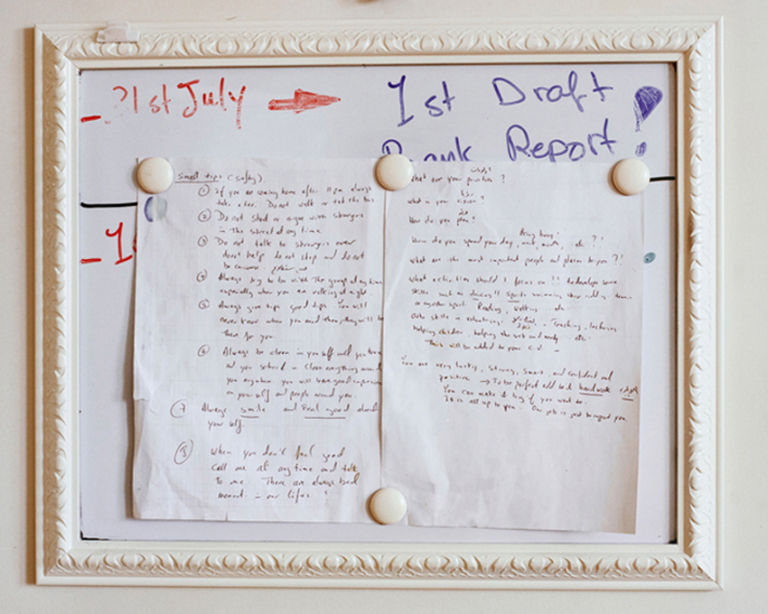 21st July
1st Draft
Report!
Smart tips (safety).
① If you are coming home after 11pm always
take a taxi. Do not walk or take the bus
② Do not stand or argue with strangers
in the street at any time.
③ Do not talk to strangers ever
don't help do not stop and do not
④ Always try to be with the group at any time
especially when you are walking at night
⑤ Always give tips good tips. You will
never know when you need them, they will be
there for you.
⑥ Always be clean in yourself
and you - clean everything around
you anywhere you will have good
on yourself and people around you.
⑦ Always smile and feel good about
your self.
⑧ When you don't feel good
call me at any time and talk
to me. There are always bad
moment in our lifes !
What are your priorities ?
What is your vision ?
How do you plan?
How do you spend your day, , , etc ? !
What are the most important people and places to you ? !
What activities should I focus on !! To develop some
skills such as dancing !! Sports swimming
or another sport. Reading, writing - etc
Other skills - volunteering: , Teaching, lecturing
helping children, helping the and needy - etc
This will be added to your C.V -
You are very lucky, strong, smart, and confident and
positive → To be perfect add to it hard work
You can make it big if you want to.
It is all up to you. Our job is just to support you.